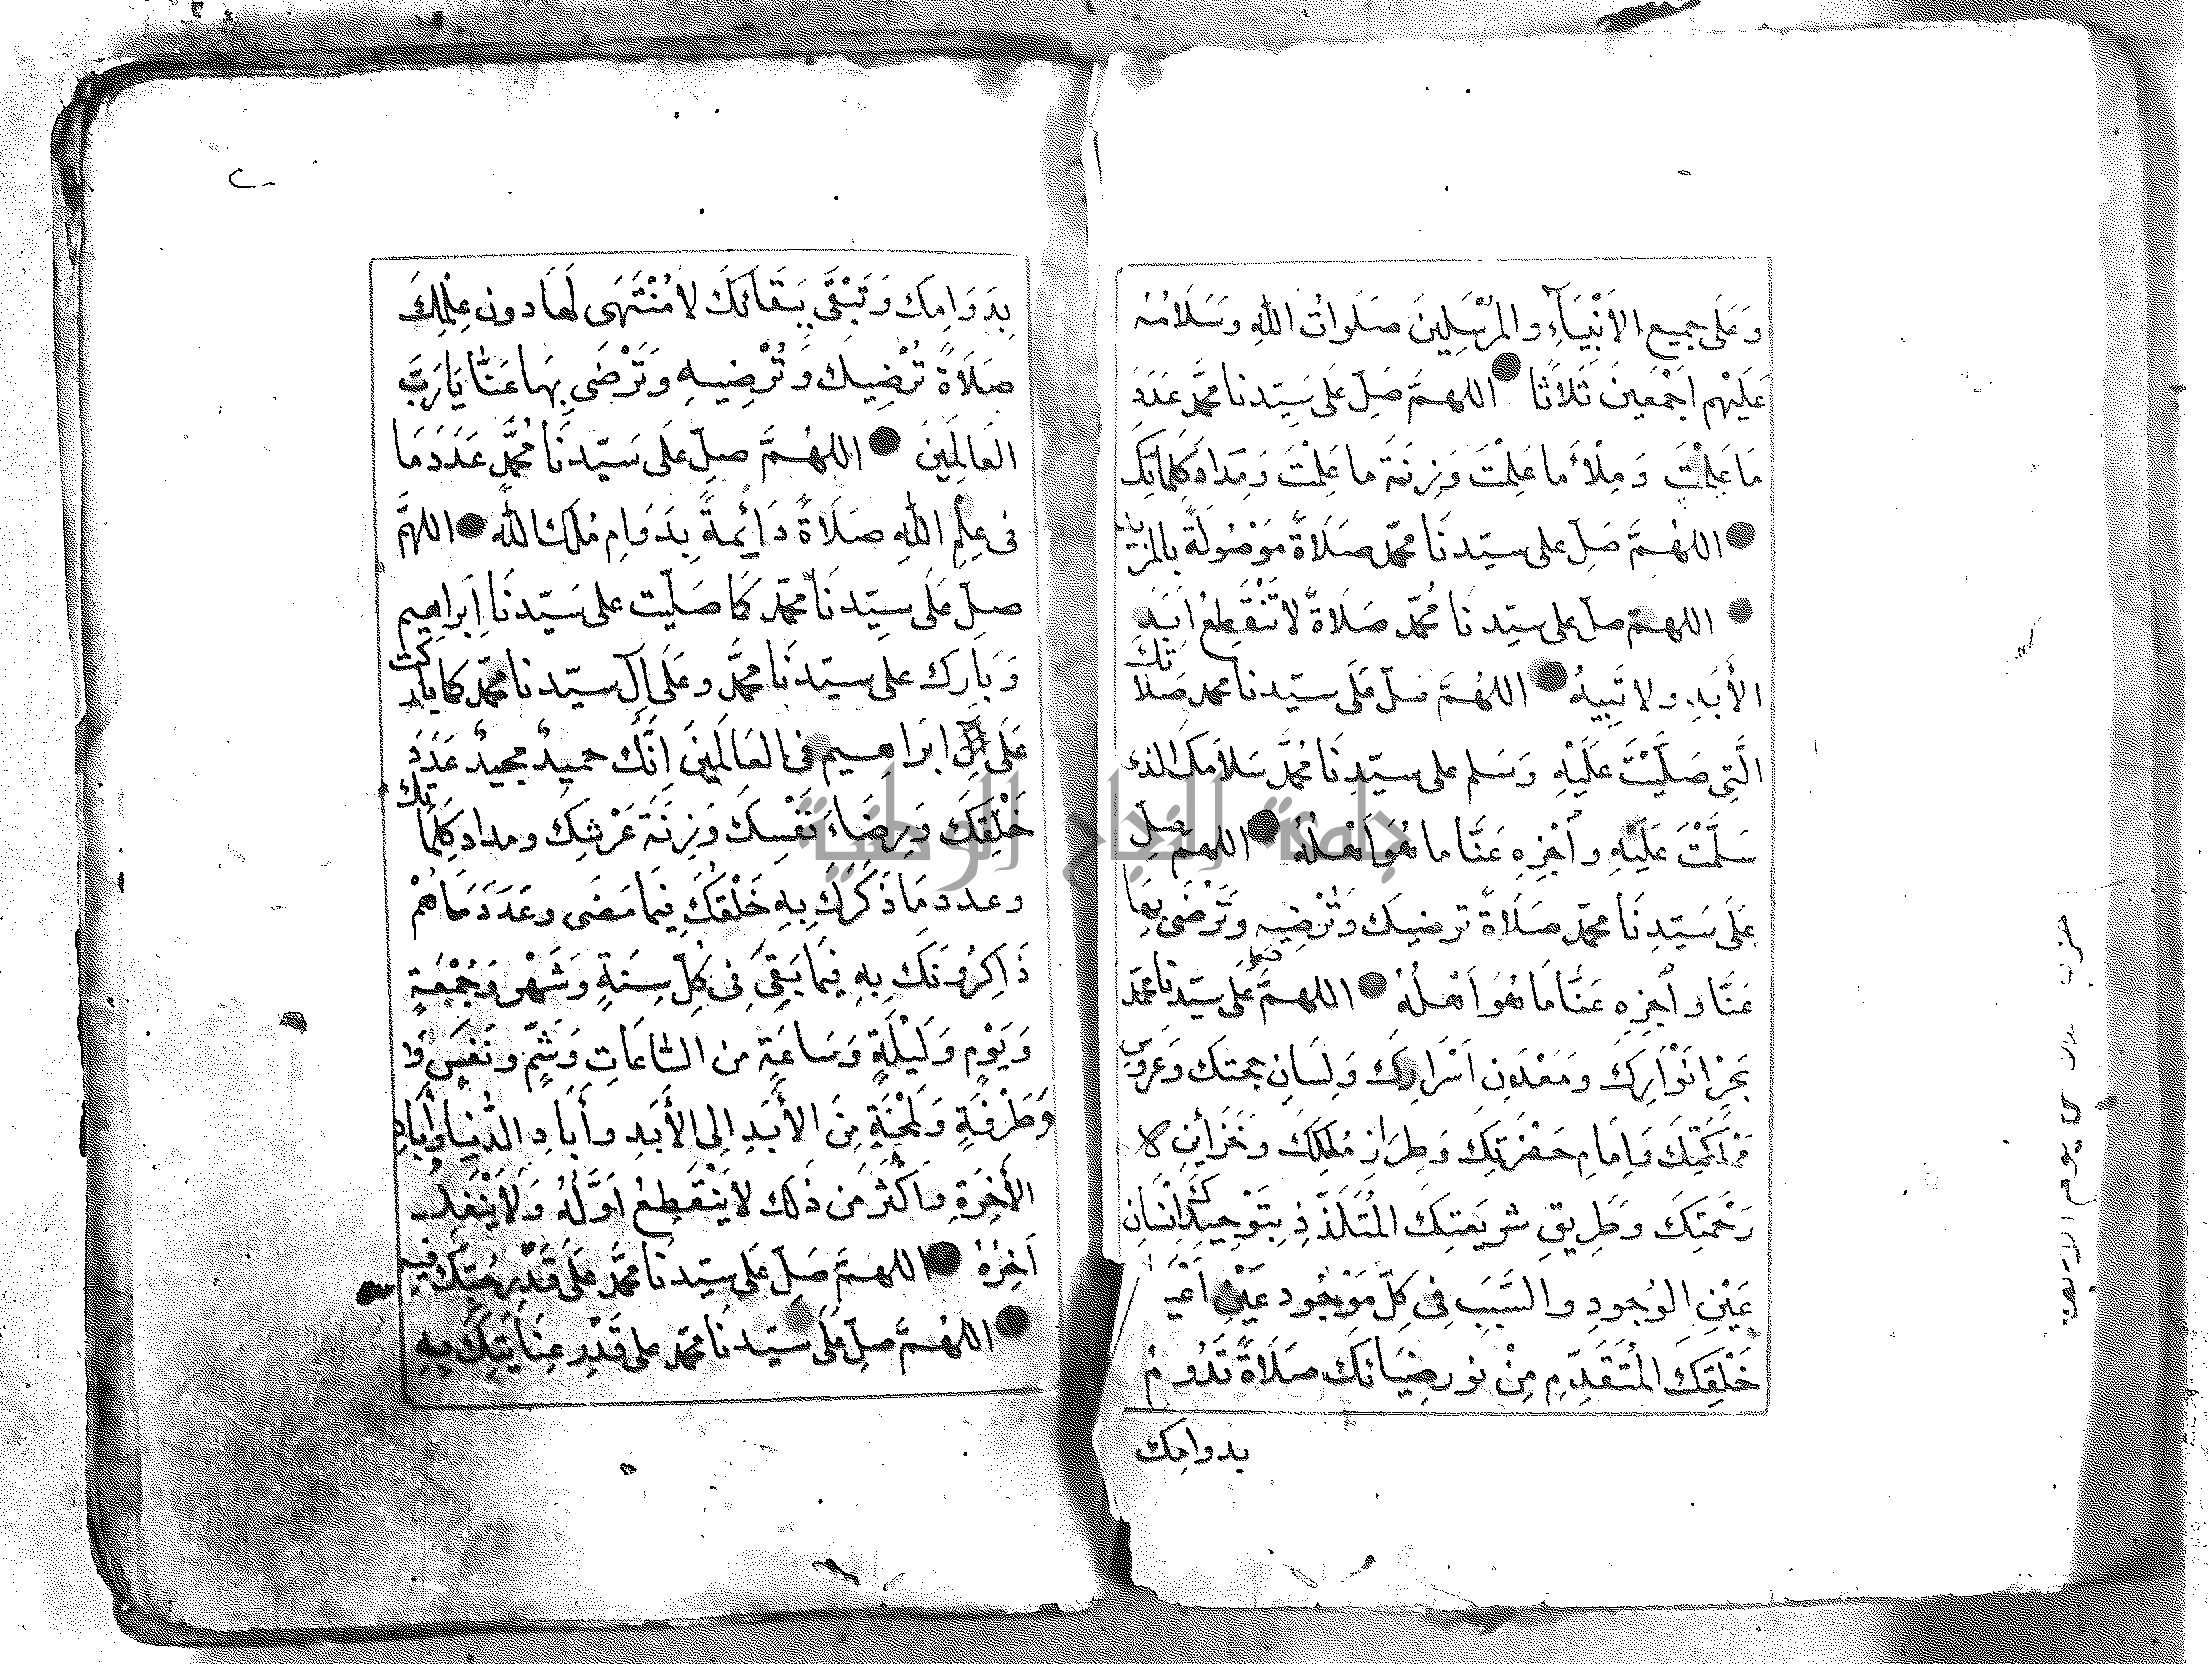 وَعَلَى جميع الأَنْبِيَآءِ والمُرْسَلِينَ صَلَوَاتُ اللهِ وَسَلَامُهُ
عَلَيْهِم اَجْمَعِينَ ثَلَاثًا اللهمَّ صَلِّ عَلى سَيّدِنا محمَّدٍ عَدَدَ
مَا عَلِمْتَ وَمِلْأَ ما عَلِمْتَ وَزِنَةَ ما عَلِمْتَ وَمِدَادَ كَلِمَاتِكَ
اللهُمَّ صَلِّ على سيّدِنَا محمّدٍ صَلَاةً مَوْصُولَةً بالمزيد
اللهمّ صلّ على سيّدِنَا مُحمّدٍ صَلَاةً لَا تَنْقَطِعُ اَبَدَ
الأَبَدِ ولا تَبِيدُ اللهُمَّ صَلِّ عَلَى سيّدِنا محمد صَلَاتَكَ
الَّتِى صَلَّيْتَ عَلَيْهِ وَسَلم على سيّدِنَا مُحمَّدٍ سَلَامَكَ الذى
سَلَّمْتَ عَلَيْهِ وَأَجْزِهِ عَنَّا ما هُوَ اَهْلُهُ اللهمّ صلِّ
عَلَى سَيّدِنَا محمّدٍ صَلَاةً ترضيكَ وَتُرْضِيهِ وَتَرْضَى بِهَا
عَنَّا وأجزِهِ عَنَّا مَا هُوَ اَهْلُهُ اللهمَّ صل عَلى سيّدِنَا محمّد
بَحْرِ اَنْوَارِكَ وَمَعْدَنِ اَسْرَارِكَ وَلِسَانِ حجتكَ وَعَرُوسِ
مَمْلَكَتِكَ وَاِمَامِ حَضْرَتِكَ وَطِرَازِ مُلْكِكَ وخَزَائِنِ
رَحْمَتِكَ وَطَرِيقِ شريعتِكَ المُتَلَذِّذِ بِتَوْحِيدِكَ اِنْسَانِ
عَيْنِ الوُجودِ والسَّبَبِ فِى كلّ مَوْجُودٍ عَيْنِ اَعْيَ
خَلْقِكَ المُتَقَدِّمِ مِنْ نورِ ضِيَائِكَ صَلَاةً تَدُومُ
بدوامك
بِدَوَامِكَ وَتَبْقَى بِبَقَائِكَ لَا مُنْتَهَى لَهَا دونَ عِلْمِكَ
صَلَاةً تُرْضِيكَ وَتُرْضِيهِ وَتَرْضَى بِهَا عَنَّا يَا رَبَّ
العَالَمِينَ اللهُمَّ صلِّ عَلَى سَيّدِنَا مُحمَّدٍ عَدَدَ مَا
فى عِلْمِ اللهِ صَلَاةً دَائِمةً بِدَوَامِ مُلْكِ اللهِ اللهمَّ
صلِّ عَلَى سيّدِنَا محمّدٍ كَمَا صَلّيْت على سَيّدِنَا إبراهيم
وَبَارِك على سيّدِنَا محمَّدٍ وعَلَى آلِ سيّدِنا محمّدٍ كما باركت
عَلَى آل ابرَاهيم فى العَالَمِينَ اِنَّكَ حميدٌ مجيدٌ عَدَدَ
خَلْقِكَ وَرِضَاءَ نَفْسِكَ وَزِنَةَ عَرْشِكَ ومدادَ كَلِمَاتِكَ
وعددَ مَا ذَكَرَكَ بِهِ خَلْقُكَ فِيمَا مَضَى وعَدَدَ مَا هُمْ
ذَاكِرُونَكَ بِهِ فِيمَا بَقِىَ فِى كُلِّ سَنَةٍ وَشَهْرٍ وَجُمْعَةٍ
وَيَوْمٍ وَلَيْلَةٍ وَسَاعَةٍ من السّاعَاتِ وَشَمٍّ ونَفَسٍ
وَطَرْفَةٍ وَلَمْحَةٍ مِنَ الأَبَدِ اِلى الأَبَدِ وأبَادِ الدُّنيَا وأبَادِ
الأَخِرَةِ وَاكْثَرَ مِن ذَلكَ لَا يَنْقَطِعُ اَوَّلُهُ وَلَا يَنْفَدُ
اَخِرُهُ اللهمَّ صَلِّ عَلَى سيّدِنَا محمَّدٍ عَلَى قَدْرِ حُبِّكَ فيه
اللهُمَّ صلِّ عَلَى سيّدِنَا محمّدٍ على قَدْرِ عِنَايَتِكَ بِهِ
جامعة النجاح الوطنية